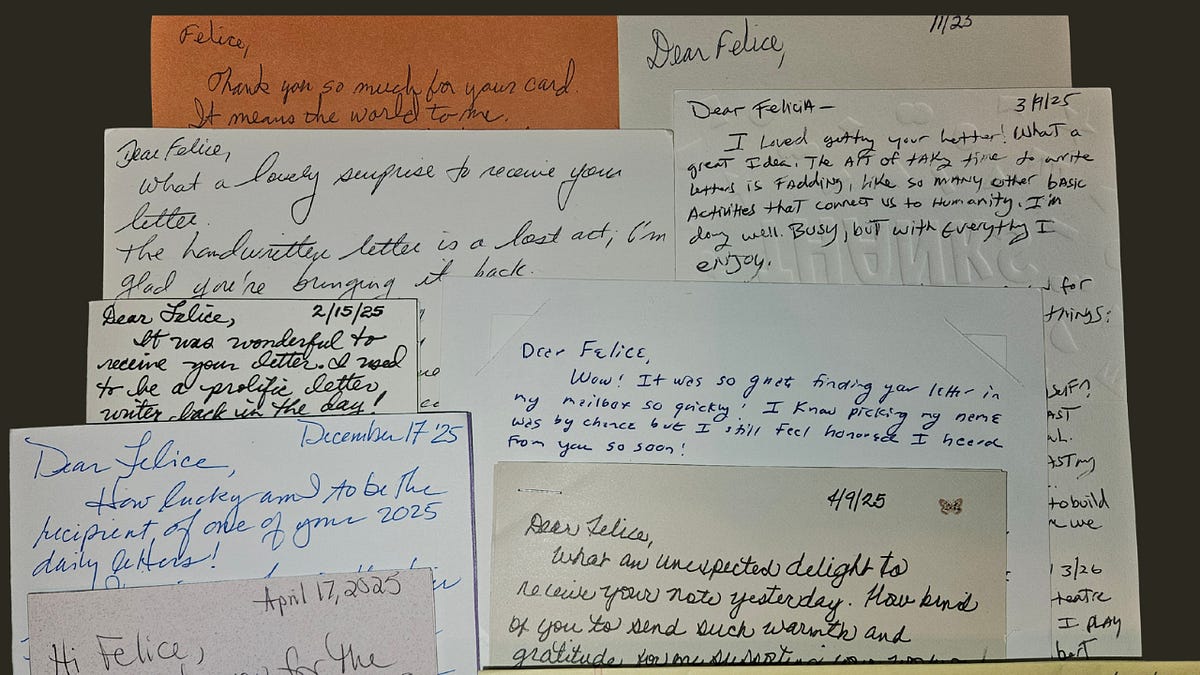 Felice,
Thank you so much for your card.
It means the world to me.
11/25
Dear Felice,
Dear Felice,
What a lovely surprise to receive your
letter.
The handwritten letter is a lost art; I'm
glad you're bringing it back.
Dear Felicia— 3/9/25
I Loved getting your Letter! What a
great Idea. The ART of taking time to write
letters is FADDING, Like so many other BASIC
Activities that connect us to Humanity. I'm
doing well. Busy, but with Everything I
enjoy.
THANKS
for
things:
Dear Felice, 2/15/25
It was wonderful to
receive your letter. I used
to be a prolific letter
writer back in the day!
Dear Felice,
Wow! It was so great finding your letter in
my mailbox so quickly! I know picking my name
was by chance but I still feel honored I heard
from you so soon!
to build
we
3/26
I PLAY
December 17 '25
Dear Felice,
How lucky am I to be the
recipient of one of your 2025
daily letters!
4/9/25
Dear Felice,
What an unexpected delight to
receive your note yesterday. How kind
of you to send such warmth and
gratitude
April 17, 2025
Hi Felice,
for the